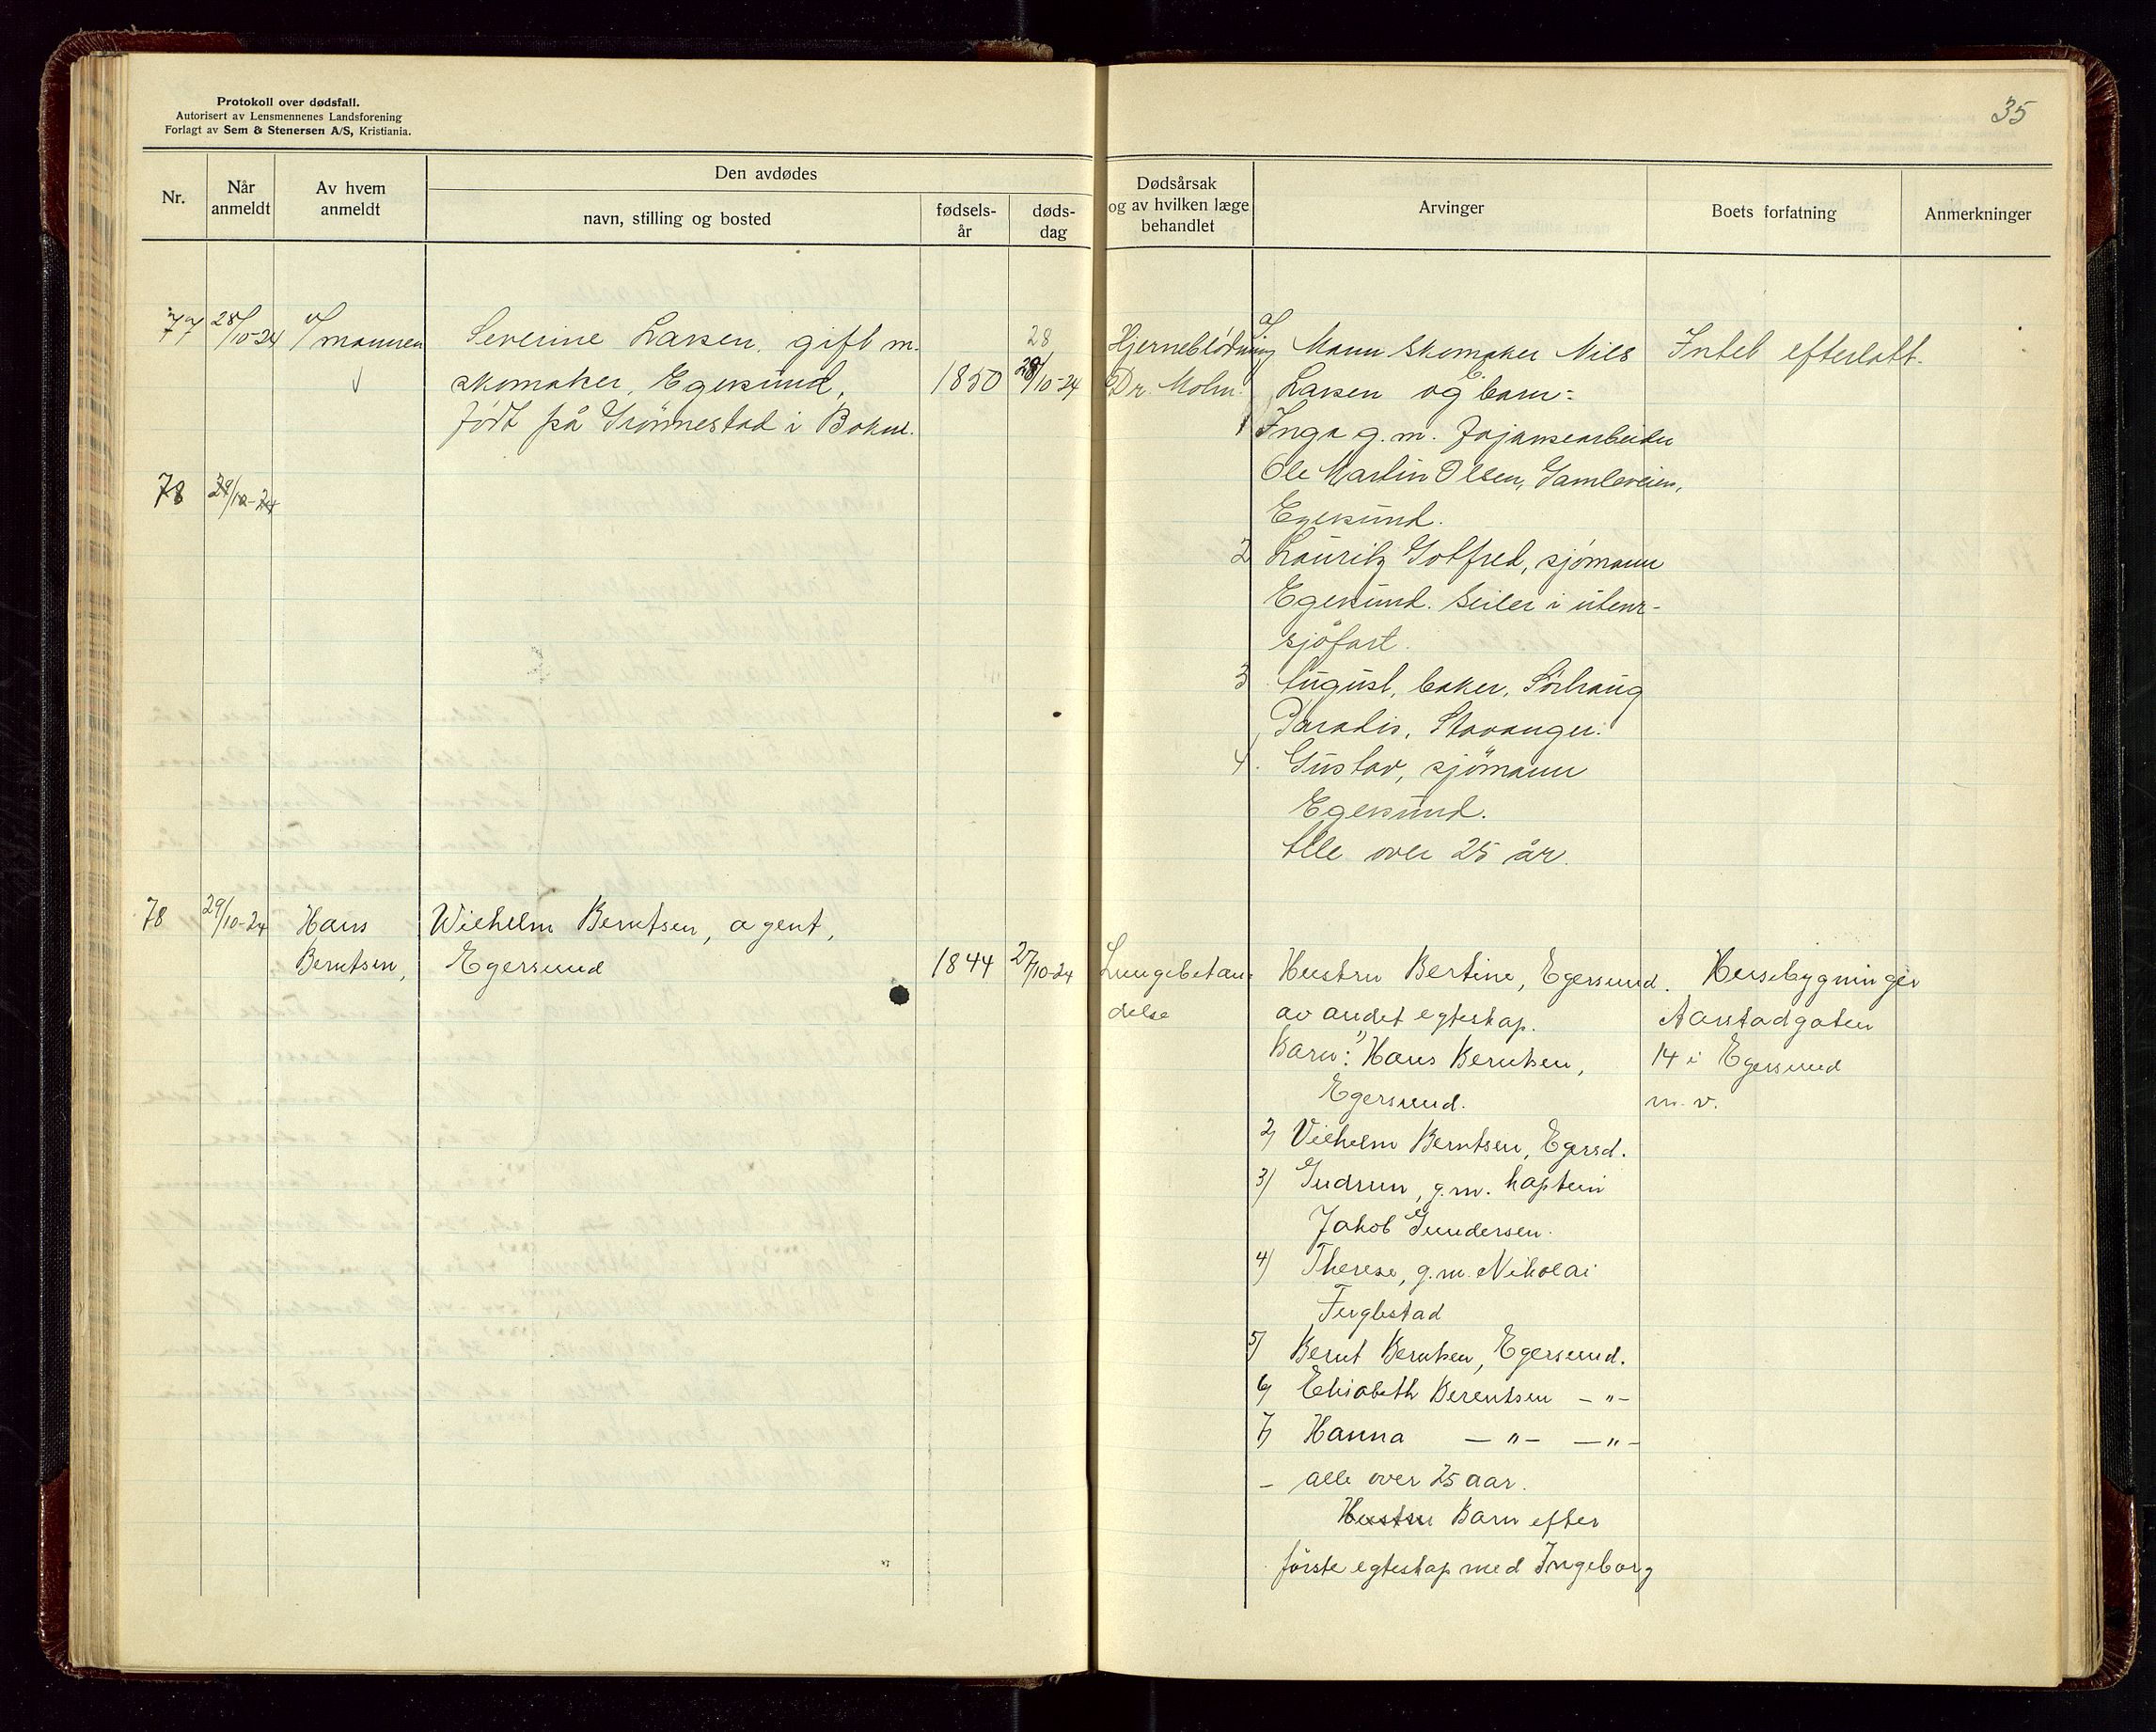 Protokoll over dødsfall.
Autorisert av Lensmennenes Landsforening
Forlagt av Sem & Stenersen A/S, Kristiania.
35
Nr.
Når anmeldt
Av hvem anmeldt
Den avdødes
navn, stilling og bosted
fødsels-år
døds-dag
Dødsårsak og av hvilken læge behandlet
Arvinger
Boets forfatning
Anmerkninger
77
28/10-24
mannen
Severine Larsen, gift m.
skomaker, Egersund,
født på Grönnestad i Bokn.
1850
28
28/10-24
Hjerneblödning
Dr. Molm.
Mann skomaker Nils
Larsen og barn:
1 Inga g.m. fajansearbeider
Ole Martin Olsen, Gamleveien,
Egersund.
2 Lauritz Gotfred, sjömann
Egersund. Seiler i utenr-
sjöfart.
3 August, baker, Sörhaug
Paradis, Stavanger.
4. Gustav, sjömann
Egersund.
Alle over 25 år.
Intet efterlatt.
78
29/10-24
78
29/10-24
Hans
Berntsen,
Wilhelm Berntsen, agent,
Egersund
1844
27/10-24
Lungebetæn-
delse
Hustru Bertine, Egersund.
av andet egteskap.
Barn: 1) Hans Berntsen,
Egersund.
2) Vilhelm Berntsen, Egersd.
3) Gudrun, g.m. kaptein
Jakob Gundersen.
4) Therese, g.m. Nikolai
Fuglestad
5) Bernt Berntsen, Egersund.
6) Elisabeth Berentsen - " -
7) Hanna - " - - " -
- alle over 25 aar.
Hustru Barn efter
förste egteskap med Ingeborg
Husebygninger
Aarstadgaten
14 i Egersund
m. v.